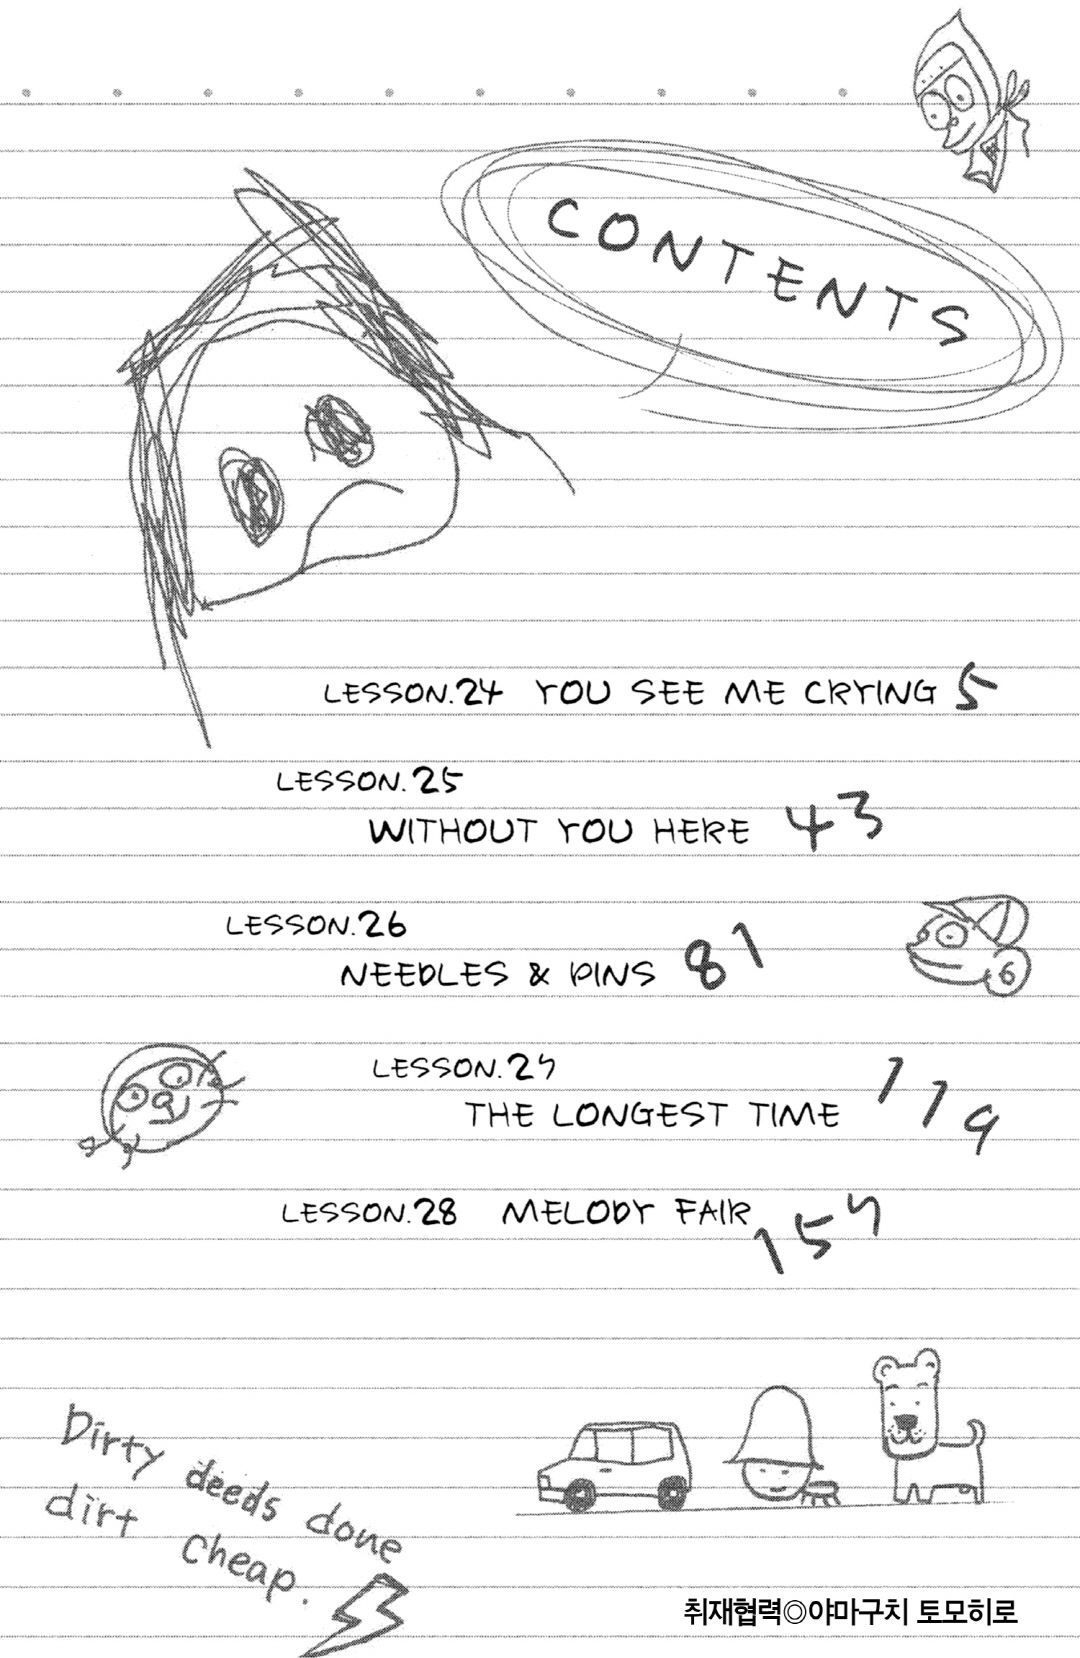 CONTENTS
LESSON.24 YOU SEE ME CRYING 5
LESSON.25
WITHOUT YOU HERE 43
LESSON.26
NEEDLES & PINS 81
6
LESSON.27
THE LONGEST TIME 119
LESSON.28 MELODY FAIR 157
Dirty deeds done
dirt cheap.
취재협력◎야마구치 토모히로